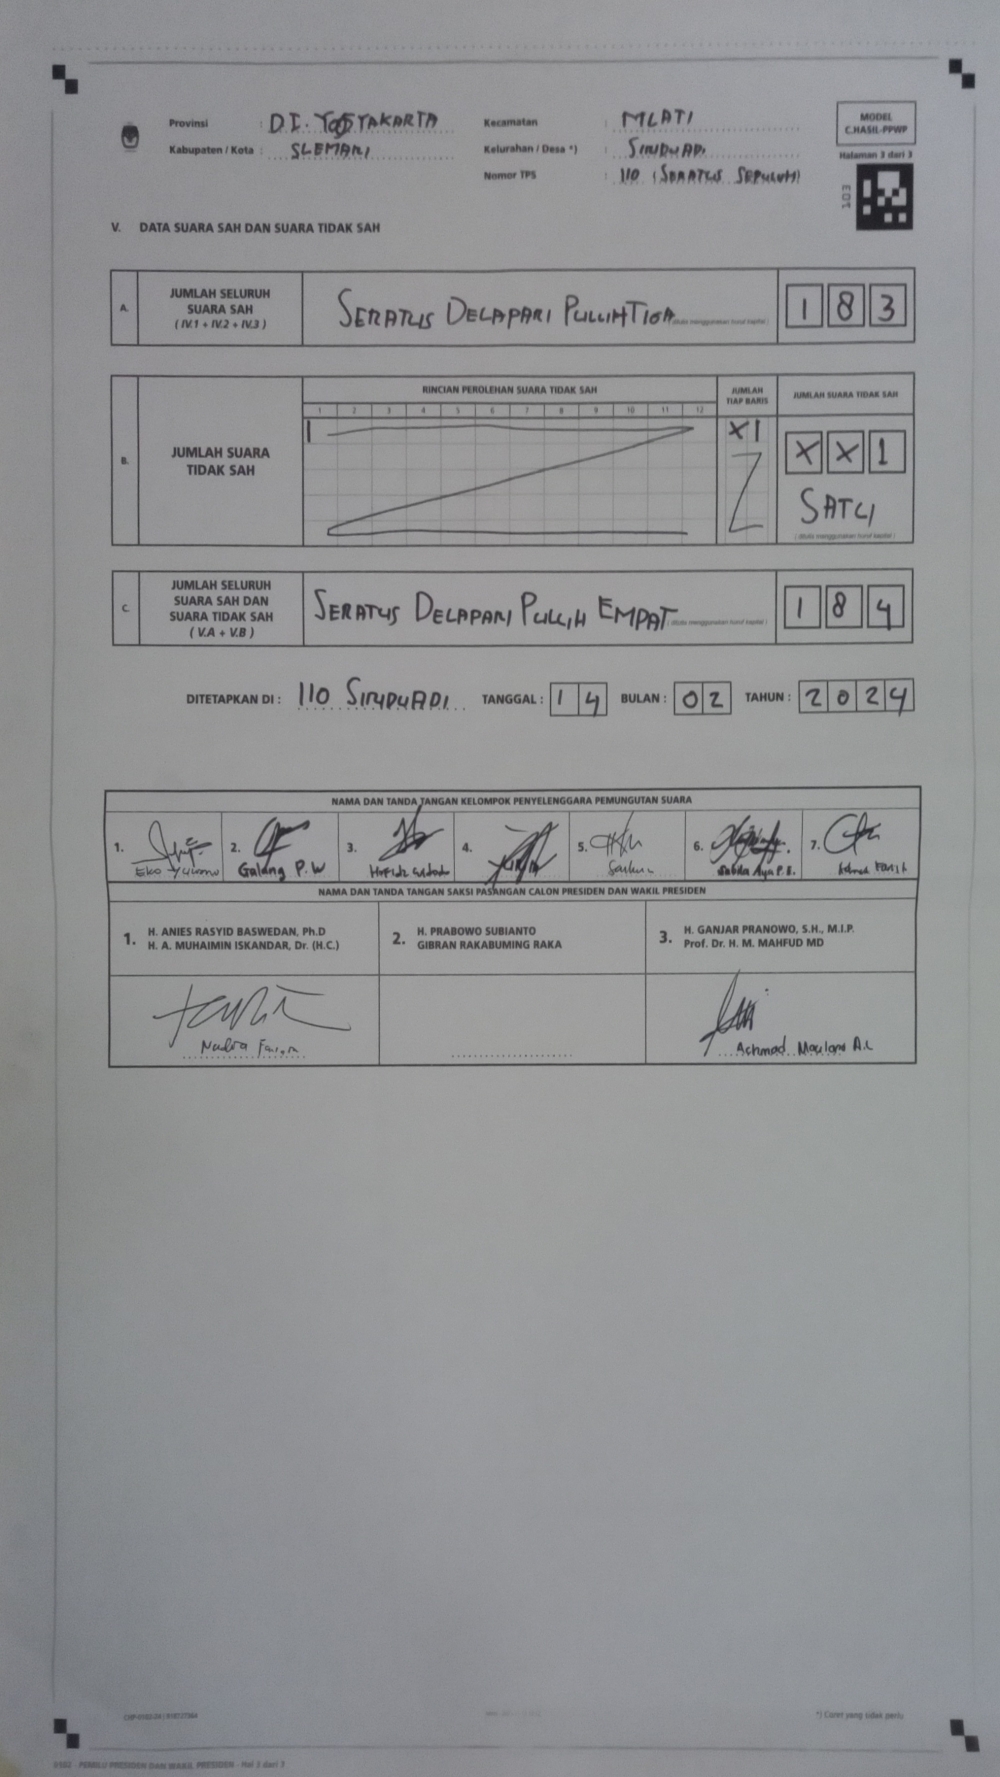 Provinsi : D.I. YOGYAKARTA
Kabupaten / Kota : SLEMAN
Kecamatan : MLATI
Kelurahan / Desa *) : SINDUADI
Nomor TPS : 110 (SERATUS SEPULUH)
MODEL
C.HASIL-PPWP
Halaman 3 dari 3
103
V. DATA SUARA SAH DAN SUARA TIDAK SAH
A. JUMLAH SELURUH
SUARA SAH
( IV.1 + IV.2 + IV.3 )
SERATUS DELAPAN PULUH TIGA
(ditulis menggunakan huruf kapital)
1 8 3
B. JUMLAH SUARA
TIDAK SAH
RINCIAN PEROLEHAN SUARA TIDAK SAH
1 2 3 4 5 6 7 8 9 10 11 12
I
JUMLAH
TIAP BARIS
X 1
JUMLAH SUARA TIDAK SAH
X X 1
SATU
(ditulis menggunakan huruf kapital)
C. JUMLAH SELURUH
SUARA SAH DAN
SUARA TIDAK SAH
( V.A + V.B )
SERATUS DELAPAN PULUH EMPAT
(ditulis menggunakan huruf kapital)
1 8 4
DITETAPKAN DI : 110 SINDUADI TANGGAL : 1 4 BULAN : 0 2 TAHUN : 2 0 2 4
NAMA DAN TANDA TANGAN KELOMPOK PENYELENGGARA PEMUNGUTAN SUARA
1. 2. 3. 4. 5. 6. 7.
Galang P.W
NAMA DAN TANDA TANGAN SAKSI PASANGAN CALON PRESIDEN DAN WAKIL PRESIDEN
1. H. ANIES RASYID BASWEDAN, Ph.D
H. A. MUHAIMIN ISKANDAR, Dr. (H.C.)
2. H. PRABOWO SUBIANTO
GIBRAN RAKABUMING RAKA
3. H. GANJAR PRANOWO, S.H., M.I.P.
Prof. Dr. H. M. MAHFUD MD
Achmad Maulana A.L
*) Coret yang tidak perlu
0102 - PEMILU PRESIDEN DAN WAKIL PRESIDEN - Hal 3 dari 3